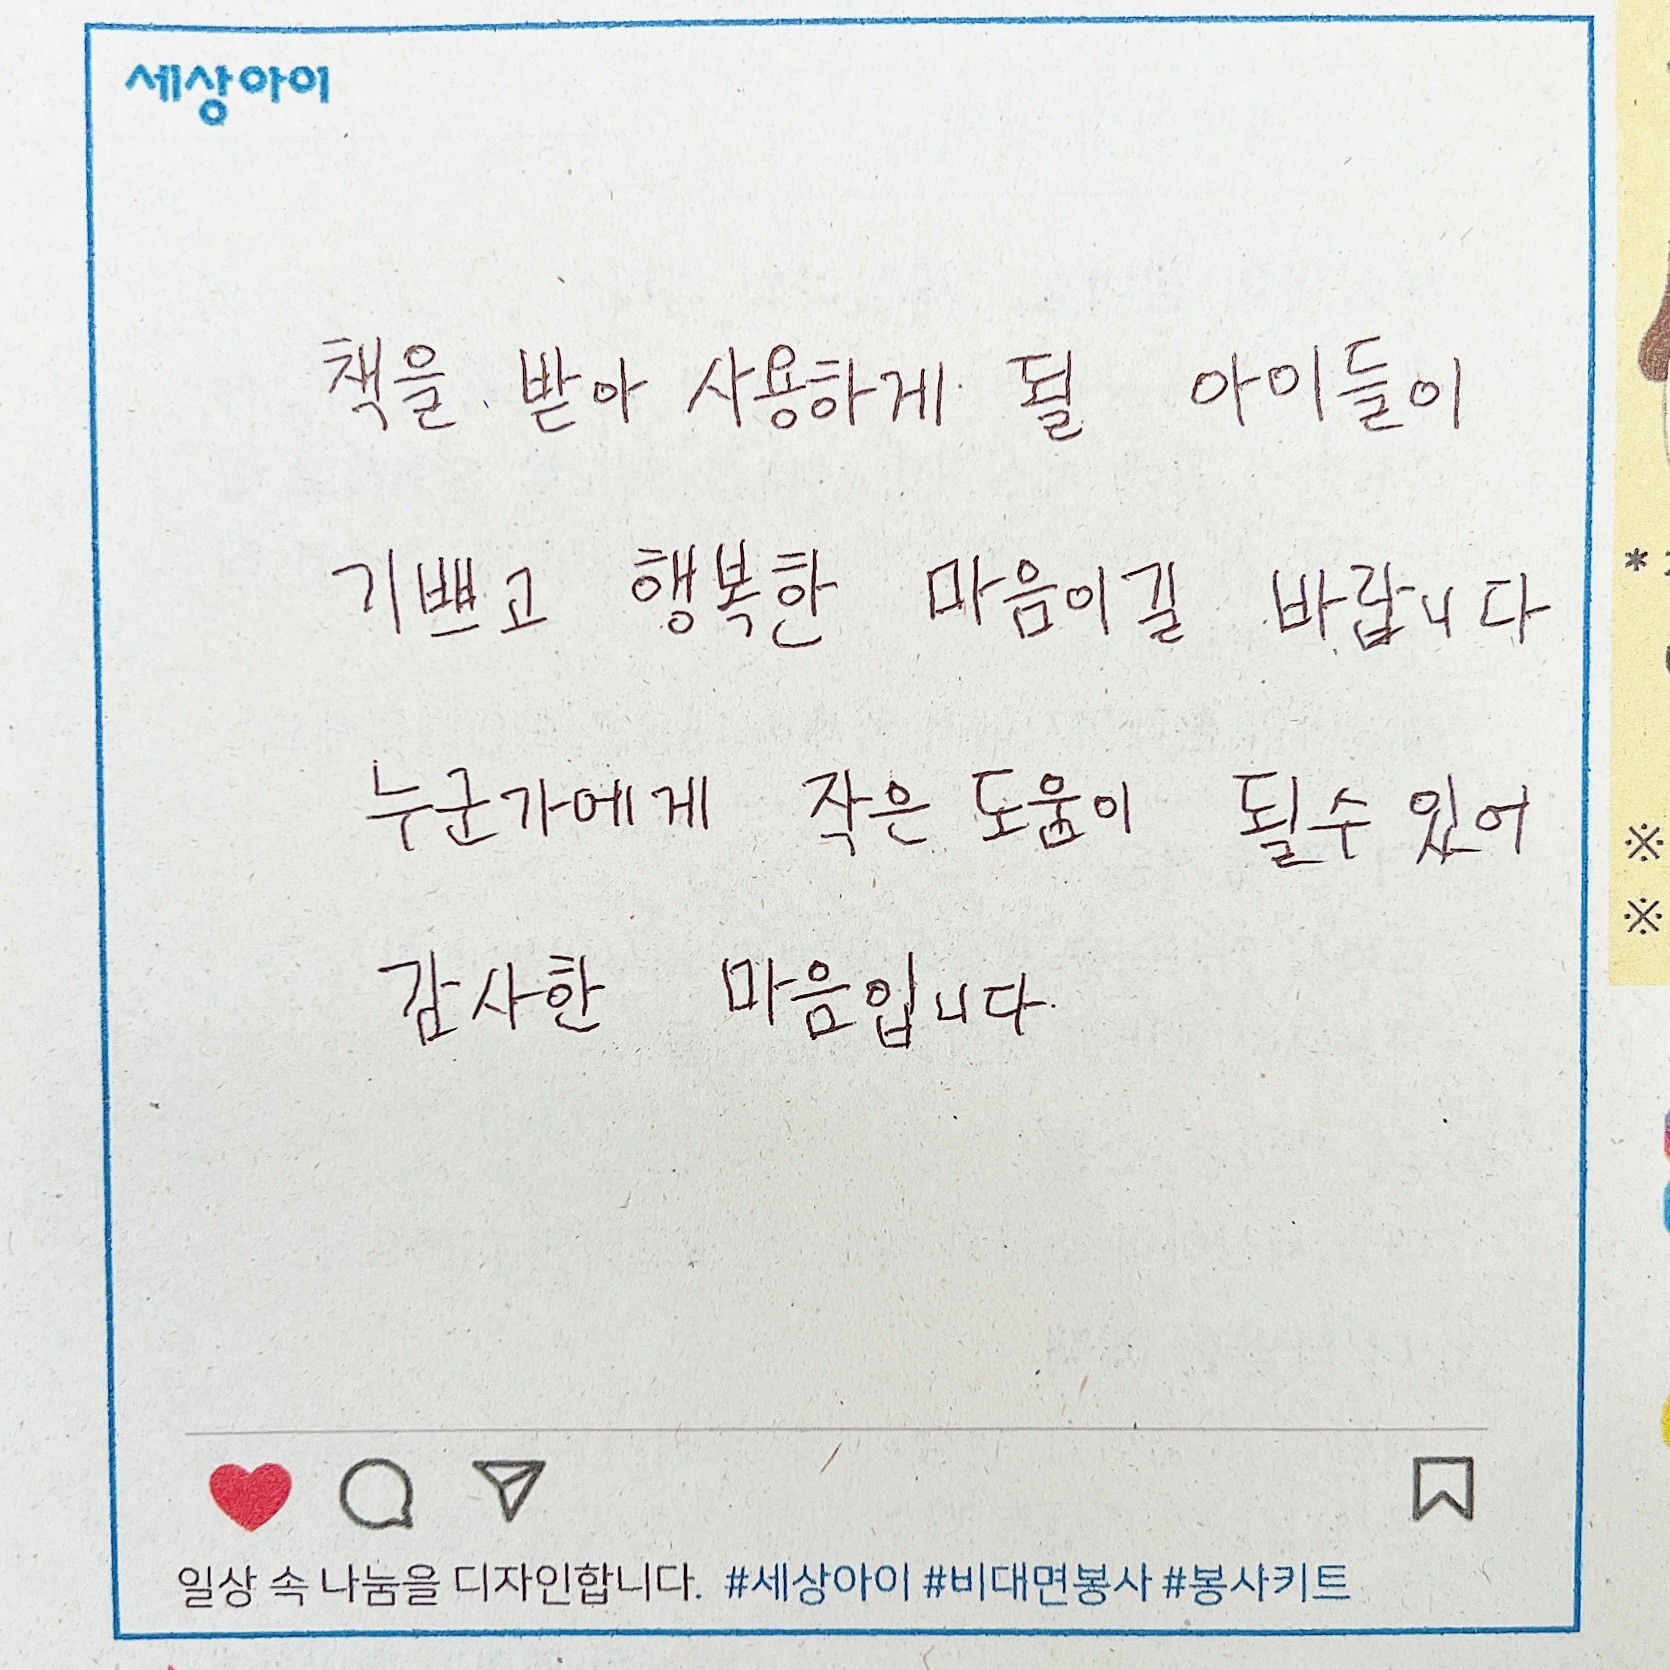 세상아이
책을 받아 사용하게 될 아이들이
기쁘고 행복한 마음이길 바랍니다
누군가에게 작은 도움이 될수 있어
감사한 마음입니다.
일상 속 나눔을 디자인합니다. #세상아이 #비대면봉사 #봉사키트
*
※
※